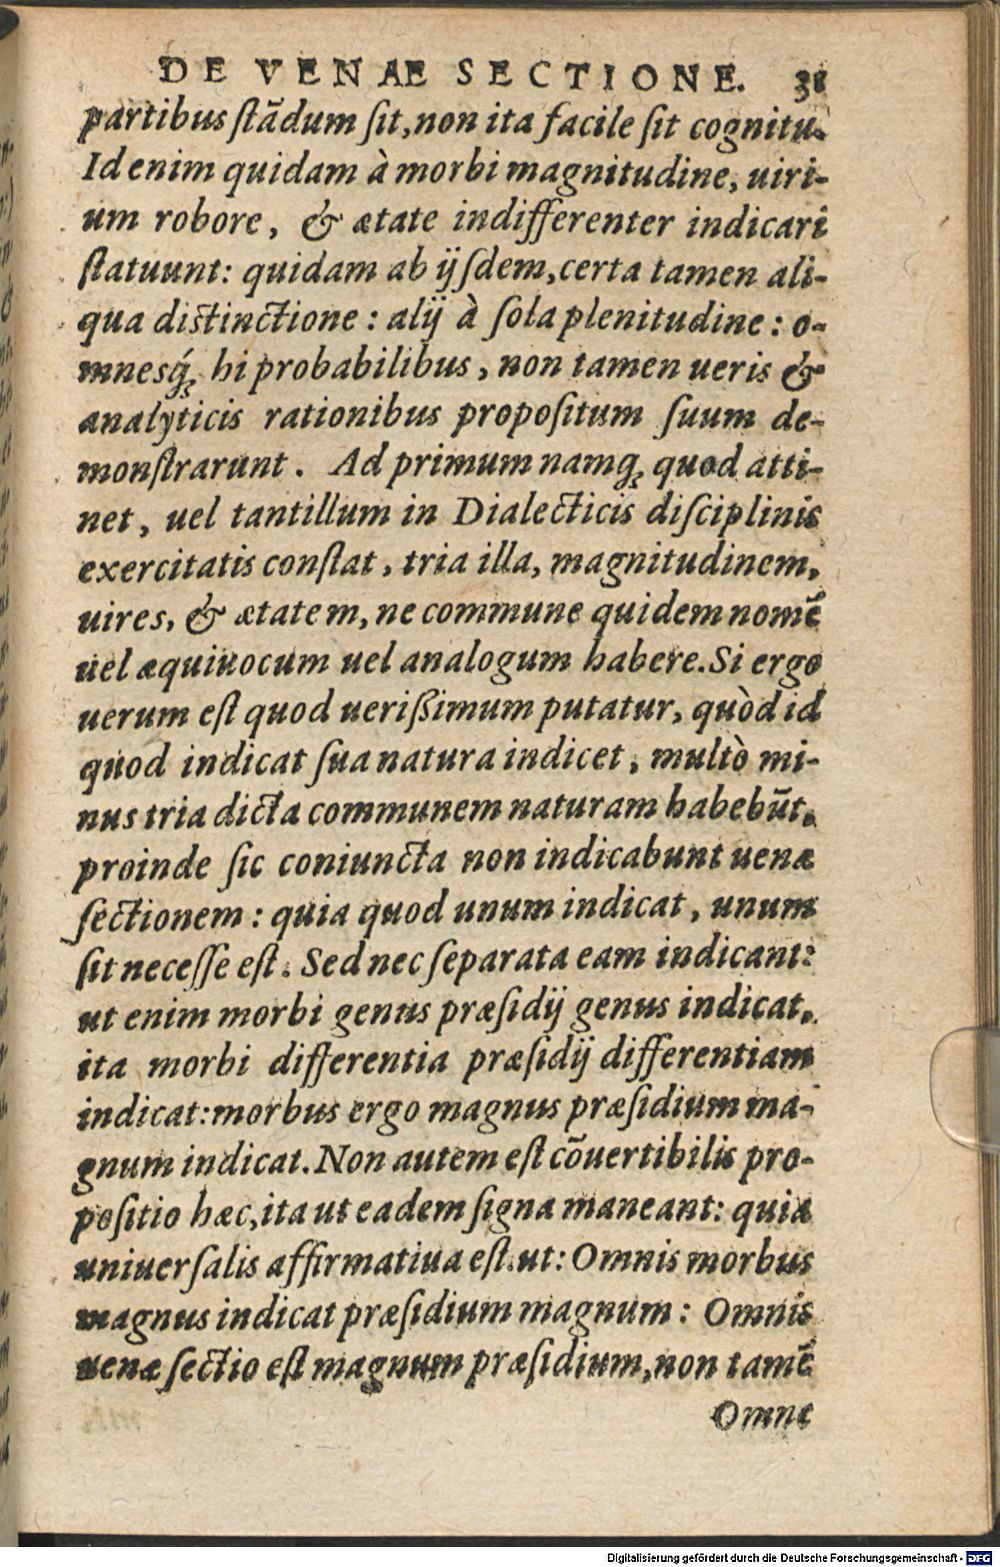 DE VENAE SECTIONE. 38
partibus stãdum sit, non ita facile sit cognitu.
Id enim quidam à morbi magnitudine, uiri-
um robore, & ætate indifferenter indicari
statuunt: quidam ab ijsdem, certa tamen ali-
qua distinctione: alij à sola plenitudine: o-
mnesq́; hi probabilibus, non tamen ueris &
analyticis rationibus propositum suum de-
monstrarunt. Ad primum namq; quod atti-
net, uel tantillum in Dialecticis disciplinis
exercitatis constat, tria illa, magnitudinem,
uires, & ætatem, ne commune quidem nomẽ
uel æquiuocum uel analogum habere. Si ergo
uerum est quod uerißimum putatur, quòd id
quod indicat sua natura indicet, multò mi-
nus tria dicta communem naturam habebũt.
proinde sic coniuncta non indicabunt uenæ
sectionem: quia quod unum indicat, unum
sit necesse est. Sed nec separata eam indicant:
ut enim morbi genus præsidij genus indicat,
ita morbi differentia præsidij differentiam
indicat: morbus ergo magnus præsidium ma-
gnum indicat. Non autem est cõuertibilis pro-
positio hæc, ita ut eadem signa maneant: quia
uniuersalis affirmatiua est. ut: Omnis morbus
magnus indicat præsidium magnum: Omnis
uenæ sectio est magnum præsidium, non tamẽ
Omne
Digitalisierung gefördert durch die Deutsche Forschungsgemeinschaft - DFG